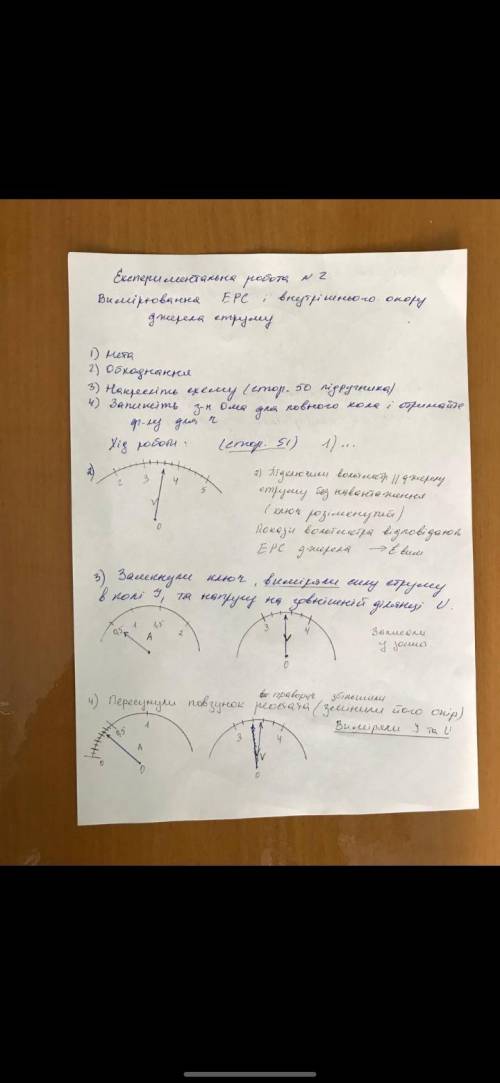 Експериментальна робота №2
Вимірювання ЕРС і внутрішнього опору
джерела струму
1) Мета
2) Обладнання
3) Накресліть схему (стор. 50 підручника)
4) Запишіть з-н Ома для повного кола і отримайте
ф-лу для r
Хід роботи: (стор. 51) 1)...
2)
2 3 4 5
V
0
2) Підключили вольтметр || джерелу
струму без навантаження
(ключ розімкнутий)
Покази вольтметра відповідають
ЕРС джерела → Евим
3) Замкнули ключ, виміряли силу струму
в колі I, та напругу на зовнішній ділянці U.
0,5 1 1,5 2
A
3 4
V
0
Записали
у зошит
праворуч збільшили
4) Пересунули повзунок реостата (змінили його опір)
Виміряли I та U
0 0,5 1
A
0
3 4
V
0